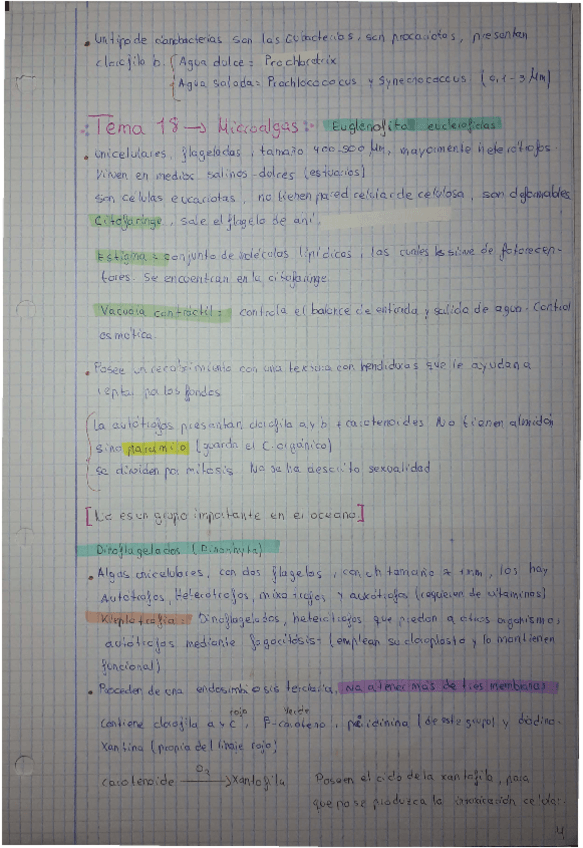 • Un tipo de cianobacterias son las Cobacterias, son procariotas, presentan
clorofila b. Agua dulce: Prochlorotrix
Agua salada: Prochlococcus y Synecnococcus (0,1-3 µm)
Tema 18 → Microalgas: Euglenofita euclerofidas
• unicelulares, flageladas, tamaño 400-500 µm, mayormente heterótrofos.
Viven en medios salinos-dulces (estuarios)
son células eucariotas, no tienen pared celular de celulosa, son deformables
Citofaringe, sale el flagelo de ahí.
Estigma = conjunto de moléculas lipídicas, las cuales les sirve de fotorecen-
tores. Se encuentran en la citofaringe.
Vacuola contráctil: controla el balance de entrada y salida de agua. Control
osmótica.
• Posee un recubrimiento con una textura con hendiduras que le ayudan a
reptar por los fondos
La autótrofos presentan clorofila a y b + carotenoides No tienen almidón
sino paramilo (guarda el C. orgánico)
se dividen por mitosis. No se ha descrito sexualidad
[No es un grupo importante en el océano]
Dinoflagelados (Dinophyta)
• Algas unicelulares, con dos flagelos, con un tamaño 1mm, los hay
Autótrofos, Heterótrofos, mixotrofos y auxótrofos (requieren de vitaminas)
Kleptotrofia: Dinoflagelados, heterótrofos que puedan a otros organismos
autótrofos mediante fagocitosis (emplean su cloroplasto y lo mantienen
funcional)
• Proceden de una endosimbiosis terciaria, va a tener más de tres membranas.
rojo verde
Contiene clorofila a y c, β-caroteno, peridinina (de este grupo) y diadino-
xantina (propia del linaje rojo)
O2
carotenoide → xantofila Poseen el ciclo de la xantofila, para
que no se produzca la ionización celular.
4